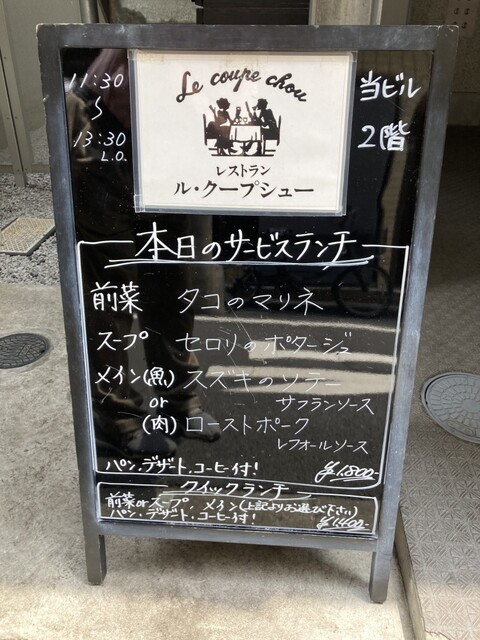 11:30
〜
13:30
L.O.
Le coupe chou
レストラン
ル・クープシュー
当ビル
2階
本日のサービスランチ
前菜 タコのマリネ
スープ セロリのポタージュ
メイン(魚) スズキのソテー
サフランソース
or
(肉) ローストポーク
レフォールソース
パン、デザート、コーヒー付! ¥1,800-
クイックランチ
前菜orスープ メイン(上記よりお選び下さい)
パン・デザート・コーヒー付! ¥1,400-